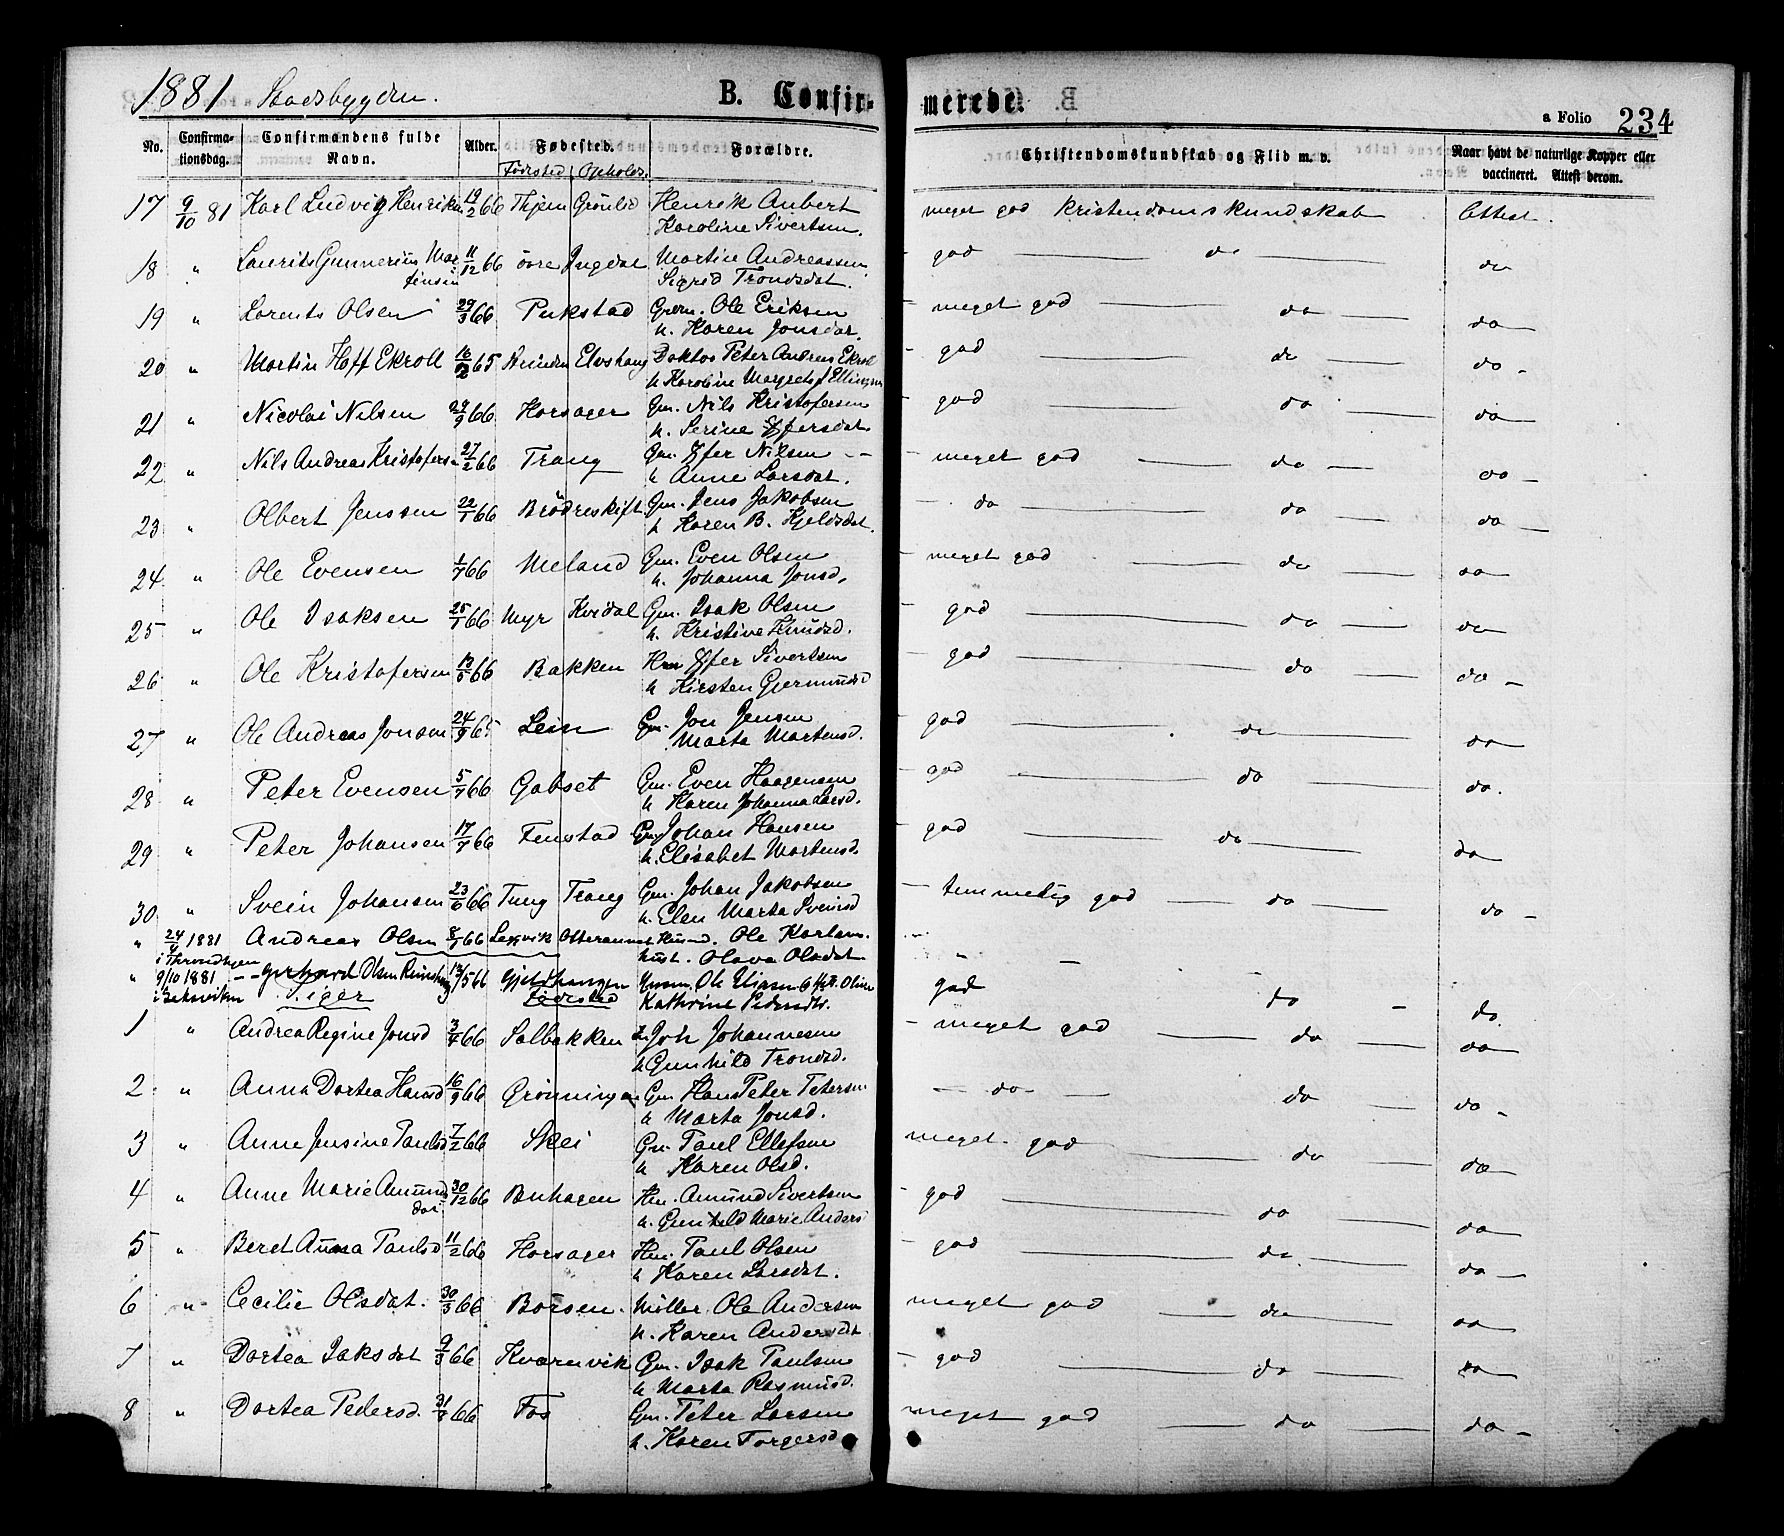 1881 Stadsbygden.
B. Confirmerede.
a Folio 234
No. Confirmationsdag. Confirmandens fulde Navn. Alder. Fødested. Forældre. Christendomskundskab og Flid m. v. Naar havt de naturlige Kopper eller vaccineret. Attest derom.
Fødested Ophold.
17 9/10 81 Karl Ludvig Henriksen 19/2 66 Henrik Aubert meget god Kristendomskundskab Attest.
Karoline Sivertsen.
18 " Laurits Gunnerius Mar 11/12 66 øvre Ingdal Martin Andreassen god do do
tinsen Sigrid Trondsdat.
19 " Lorents Olsen 29/3 66 Pukstad Grdm. Ole Eriksen meget god do do
h. Karen Jonsdat.
20 " Martin Hoff Ekroll 16/12 65 Doktor Peter Andreas Ekroll god do do
h Karoline Margrete Ellingsen
21 " Nicolai Nilsen 29/9 66 Horsager Gm. Nils Kristofersen god do do
h. Serine
22 " Nils Andreas Kristofersen 27/2 66 Trang Gm. Nilsen meget god do do
h Anne Larsdat.
23 " Olbert Jenssen 22/1 66 Brödreskift Gm. Jens Jakobsen do do do
h Karen B. Kjeldsdat.
24 " Ole Evensen 1/7 66 Meland Gm. Even Olsen meget god do do
h. Johanna Jonsd.
25 " Ole Isaksen 25/1 66 Myr Kvidal Gm. Isak Olsen god do do
h. Kristine Knudsd.
26 " Ole Kristofersen 13/5 66 Bakken Hm Sivertsen god do do
h Kirsten Gjermundsd
27 " Ole Andreas Jonsen 24/9 65 Lein Gm. Jon Jensen god do do
Marta Martensd.
28 " Peter Evensen 5/7 66 Gabset Gm. Even Haagensen god do do.
h Karen Johanna Larsd.
29 " Peter Johansen 17/7 66 Fenstad Gm Johan Hansen god do do
h. Elisabet Martensd.
30 " Svein Johansen 23/6 66 Tung Trang Gm. Johan Jakobsen temmelig god do do
h. Elen Marta Sveinsd
" 24/4 1881 Andreas Olsen 8/1 66 Leksvik Husmd. Ole Karlsen
i Throndhjem hust. Olava Olsdat
" 9/10 1881 Gerhard Olsen 13/5 66 god do do.
Fødested Kathrine Pedersdtr.
1 " Andrea Regine Jonsd 2/4 66 Solbakken Joh Johannesen meget god do do
h Gunhild Trondsd.
2 " Anna Dortea Hansd 16/9 66 Grönningen Gm Hans Peter Petersen do do do
h Marta Jonsd.
3 " Anne Jensine Paulsd 7/2 66 Skei Gm. Paul Ellefsen meget god do do
h Karen Olsd.
4 " Anne Marie Amunds 30/12 66 Buhagen Hm. Amund Sivertsen god do do
dat h. Gunhild Marie Anders
5 " Beret Anna Paulsd 11/2 66 Horsager Hm. Paul Olsen god do do
h Karen Larsdat.
6 " Cecilie Olsdat. 30/3 66 Börsen. Möller. Ole Andersen meget god do do
h. Karen Andersdt
7 " Dortea Isaksdat 9/3 66 Kvarnvik Gm. Isak Paulsen god do do
h Marta Rasmusd.
8 " Dortea Pedersd. 66 Fos Gm. Peter Larsen meget god do do
h. Karen Torgersd